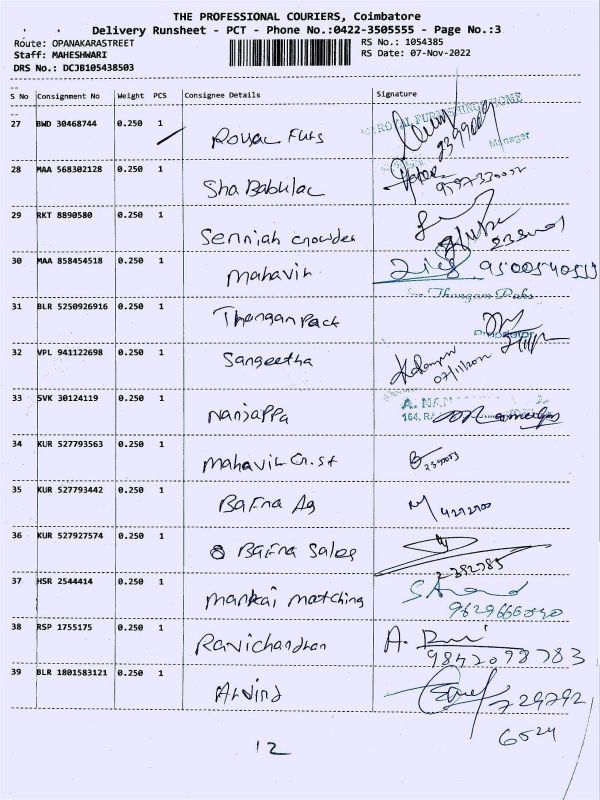 THE PROFESSIONAL COURIERS, Coimbatore
Delivery Runsheet - PCT - Phone No.:0422-3505555 - Page No.:3
Route: OPANAKARASTREET RS No.: 1054385
Staff: MAHESHWARI RS Date: 07-Nov-2022
DRS No.: DCJB105438503
S No Consignment No Weight PCS Consignee Details Signature
27 BWD 30468744 0.250 1 Royal Furs
Manager
28 MAA 568302128 0.250 1 Sha Babulac
29 RKT 8890580 0.250 1 Senniah crowder
30 MAA 858454518 0.250 1 Mahavir 9500540555
Thangam Paks
31 BLR 5250926916 0.250 1 Thangam Pack
32 VPL 941122698 0.250 1 Sangeetha
07/11/2022
33 SVK 30124119 0.250 1 Nanjappa A. NAN
164, RA
34 KUR 527793563 0.250 1 Mahavir Cr. st
35 KUR 527793442 0.250 1 Bafna Ag
36 KUR 527927574 0.250 1 Bafna Sales
2392785
37 HSR 2544414 0.250 1 Mankai matching
9629666040
38 RSP 1755175 0.250 1 Ravichandran A.
9842098783
39 BLR 1801583121 0.250 1 Arvind
729792
6024
12